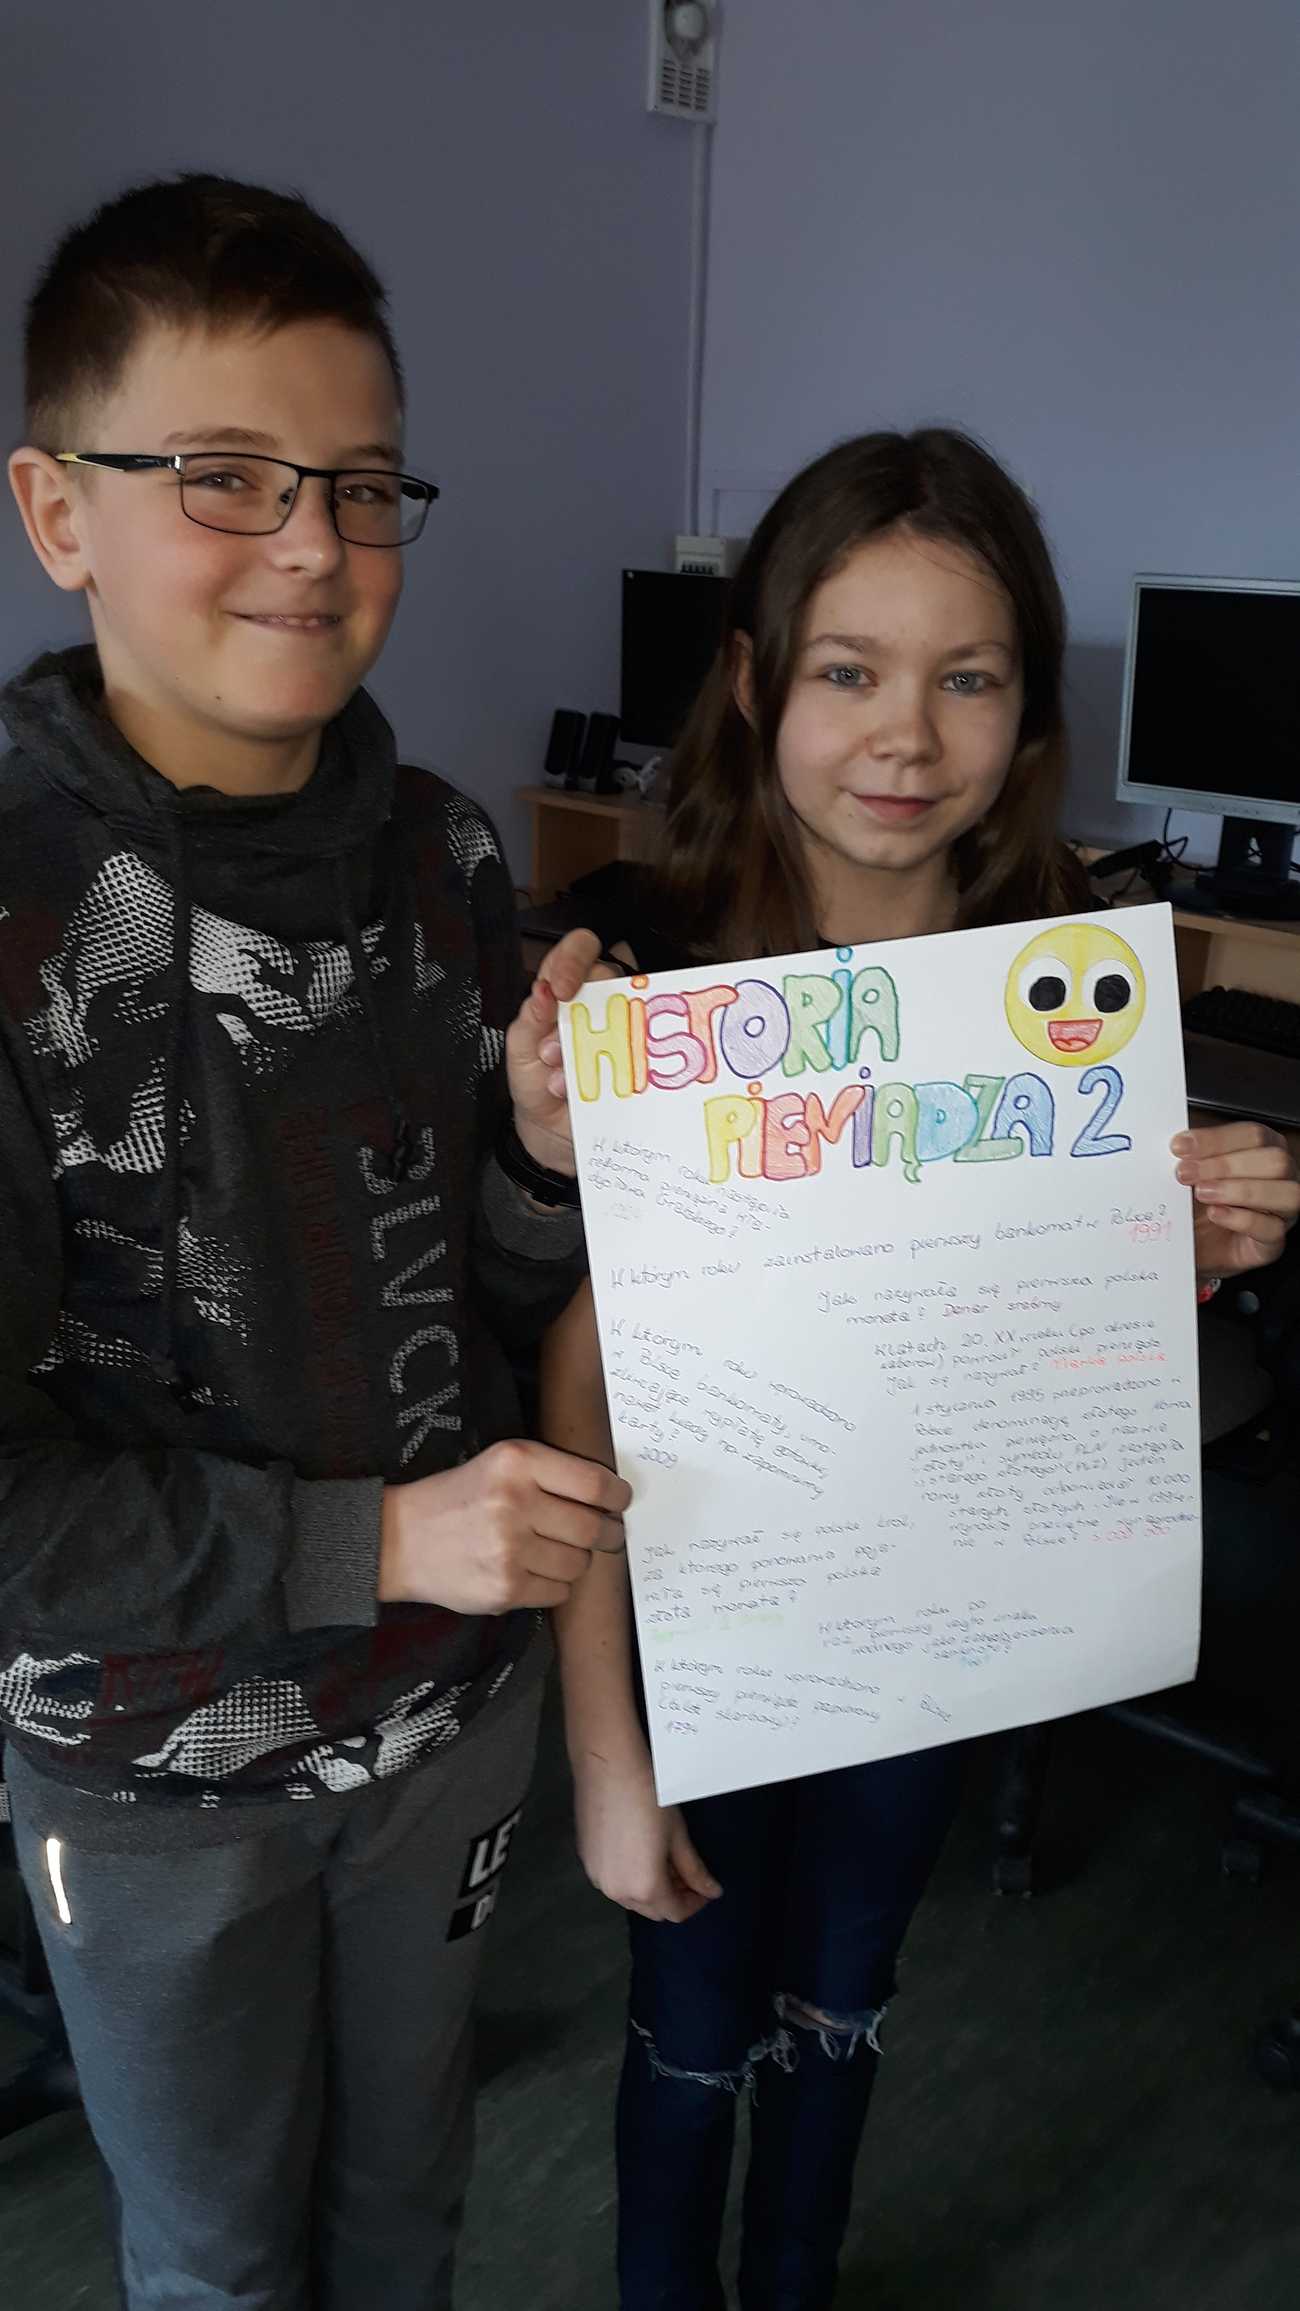 HISTORIA
PIENIĄDZA 2
W którym roku nastąpiła
reforma pieniężna Wła-
dysława Grabskiego?
1924
W którym roku zainstalowano pierwszy bankomat w Polsce?
1991
Jak nazywała się pierwsza polska
moneta? Denar srebrny
W którym roku wprowadzono
w Polsce bankomaty, umo-
żliwiające wypłatę gotówki,
nawet kiedy nie zapomnimy
karty?
2009
W latach 20. XX wieku (po okresie
zaborów) powrócił polski pieniądz
Jak się nazywał? Marka polska
1 stycznia 1995 przeprowadzono w
Polsce denominację złotego. Nowa
jednostka pieniężna o nazwie
"złoty", symbolu PLN zastąpiła
"starego złotego" (PLZ) jeden
nowy złoty odpowiadał 10 000
starych złotych. Ile w 1994 r.
wynosiło przeciętne wynagrodze-
nie w Polsce? 5 000 000
Jak nazywał się polski król,
za którego panowania poja-
wiła się pierwsza polska
złota moneta?
W którym roku po
raz pierwszy użyto znaku
wodnego jako zabezpieczenia
banknotu?
W którym roku wprowadzono
pierwszy pieniądz papierowy w Polsce
(bilet skarbowy)?
1794
LE